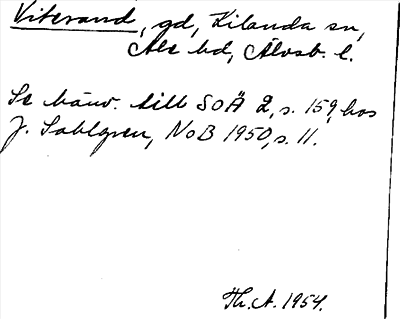 Viterand, gd, Kilanda sn,
Ale hd, Älvsb. l.
Se hänv. till SOÄ 2, s. 159, hos
J. Sahlgren, NoB 1950, s. 11.
Th. A. 1954.